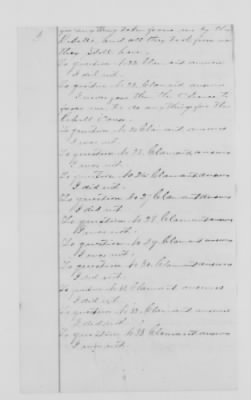 for anything taken from me by the
Rebels and all they took from me
they still have.
To question No 22 Claimant answers
I did not.
To question No 23 Claimant answers
I never gave them the chance to
force me, to do anything for the
Rebell Cause.
To question No 24 Claimant answers
I was not.
To question No 25 Claimant answers
I was not.
To question No 26 Claimant answers
I did not.
To question No 27 Claimant answers
I did not
To question No 28 Claimant answers
I was not.
To question No 29 Claimant answers
I was not.
To question No 30 Claimant answers
I did not.
To question No 31 Claimant answers
I did not.
To question No 32 Claimant answers
I did not.
To question No 33 Claimant answers
I was not.